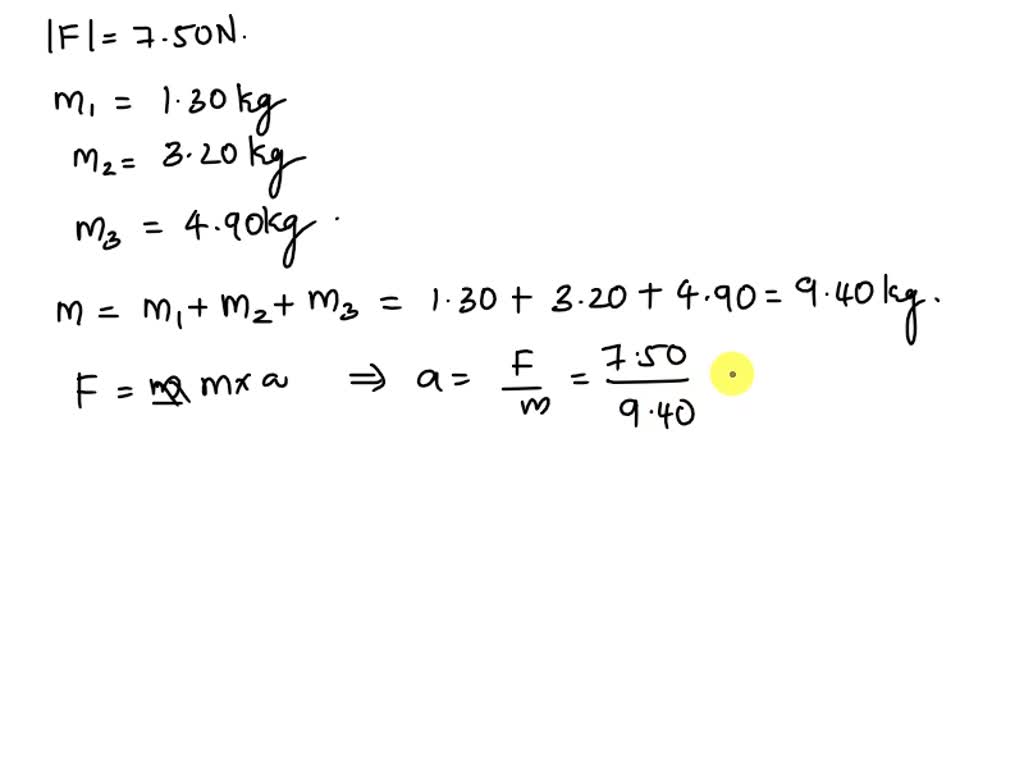 |F| = 7.50N.
m₁ = 1.30 kg
m₂ = 3.20 kg
m₃ = 4.90kg .
m = m₁ + m₂ + m₃ = 1.30 + 3.20 + 4.90 = 9.40 kg.
F = m x a ⇒ a = F/m = 7.50/9.40